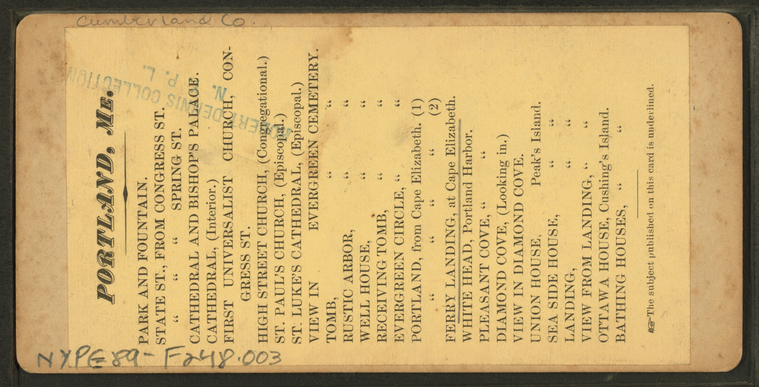 Cumberland Co.
PORTLAND, ME.
PARK AND FOUNTAIN.
STATE ST., FROM CONGRESS ST.
" " " SPRING ST.
CATHEDRAL AND BISHOP'S PALACE.
CATHEDRAL, (Interior.)
FIRST UNIVERSALIST CHURCH, CON-
GRESS ST.
HIGH STREET CHURCH, (Congregational.)
ST. PAUL'S CHURCH, (Episcopal.)
ST. LUKE'S CATHEDRAL, (Episcopal.)
VIEW IN EVERGREEN CEMETERY.
TOMB, " "
RUSTIC ARBOR, " "
WELL HOUSE, " "
RECEIVING TOMB, " "
EVERGREEN CIRCLE, " " "
PORTLAND, from Cape Elizabeth. (1)
" " " " (2)
FERRY LANDING, at Cape Elizabeth.
WHITE HEAD, Portland Harbor.
PLEASANT COVE, " "
DIAMOND COVE, (Looking in.)
VIEW IN DIAMOND COVE.
UNION HOUSE. Peak's Island.
SEA SIDE HOUSE, " "
LANDING, " "
VIEW FROM LANDING, " "
OTTAWA HOUSE, Cushing's Island.
BATHING HOUSES, " "
☞The subject published on this card is underlined.
DENNIS COLLECTION
N. P. L.
NYPE89-F248.003